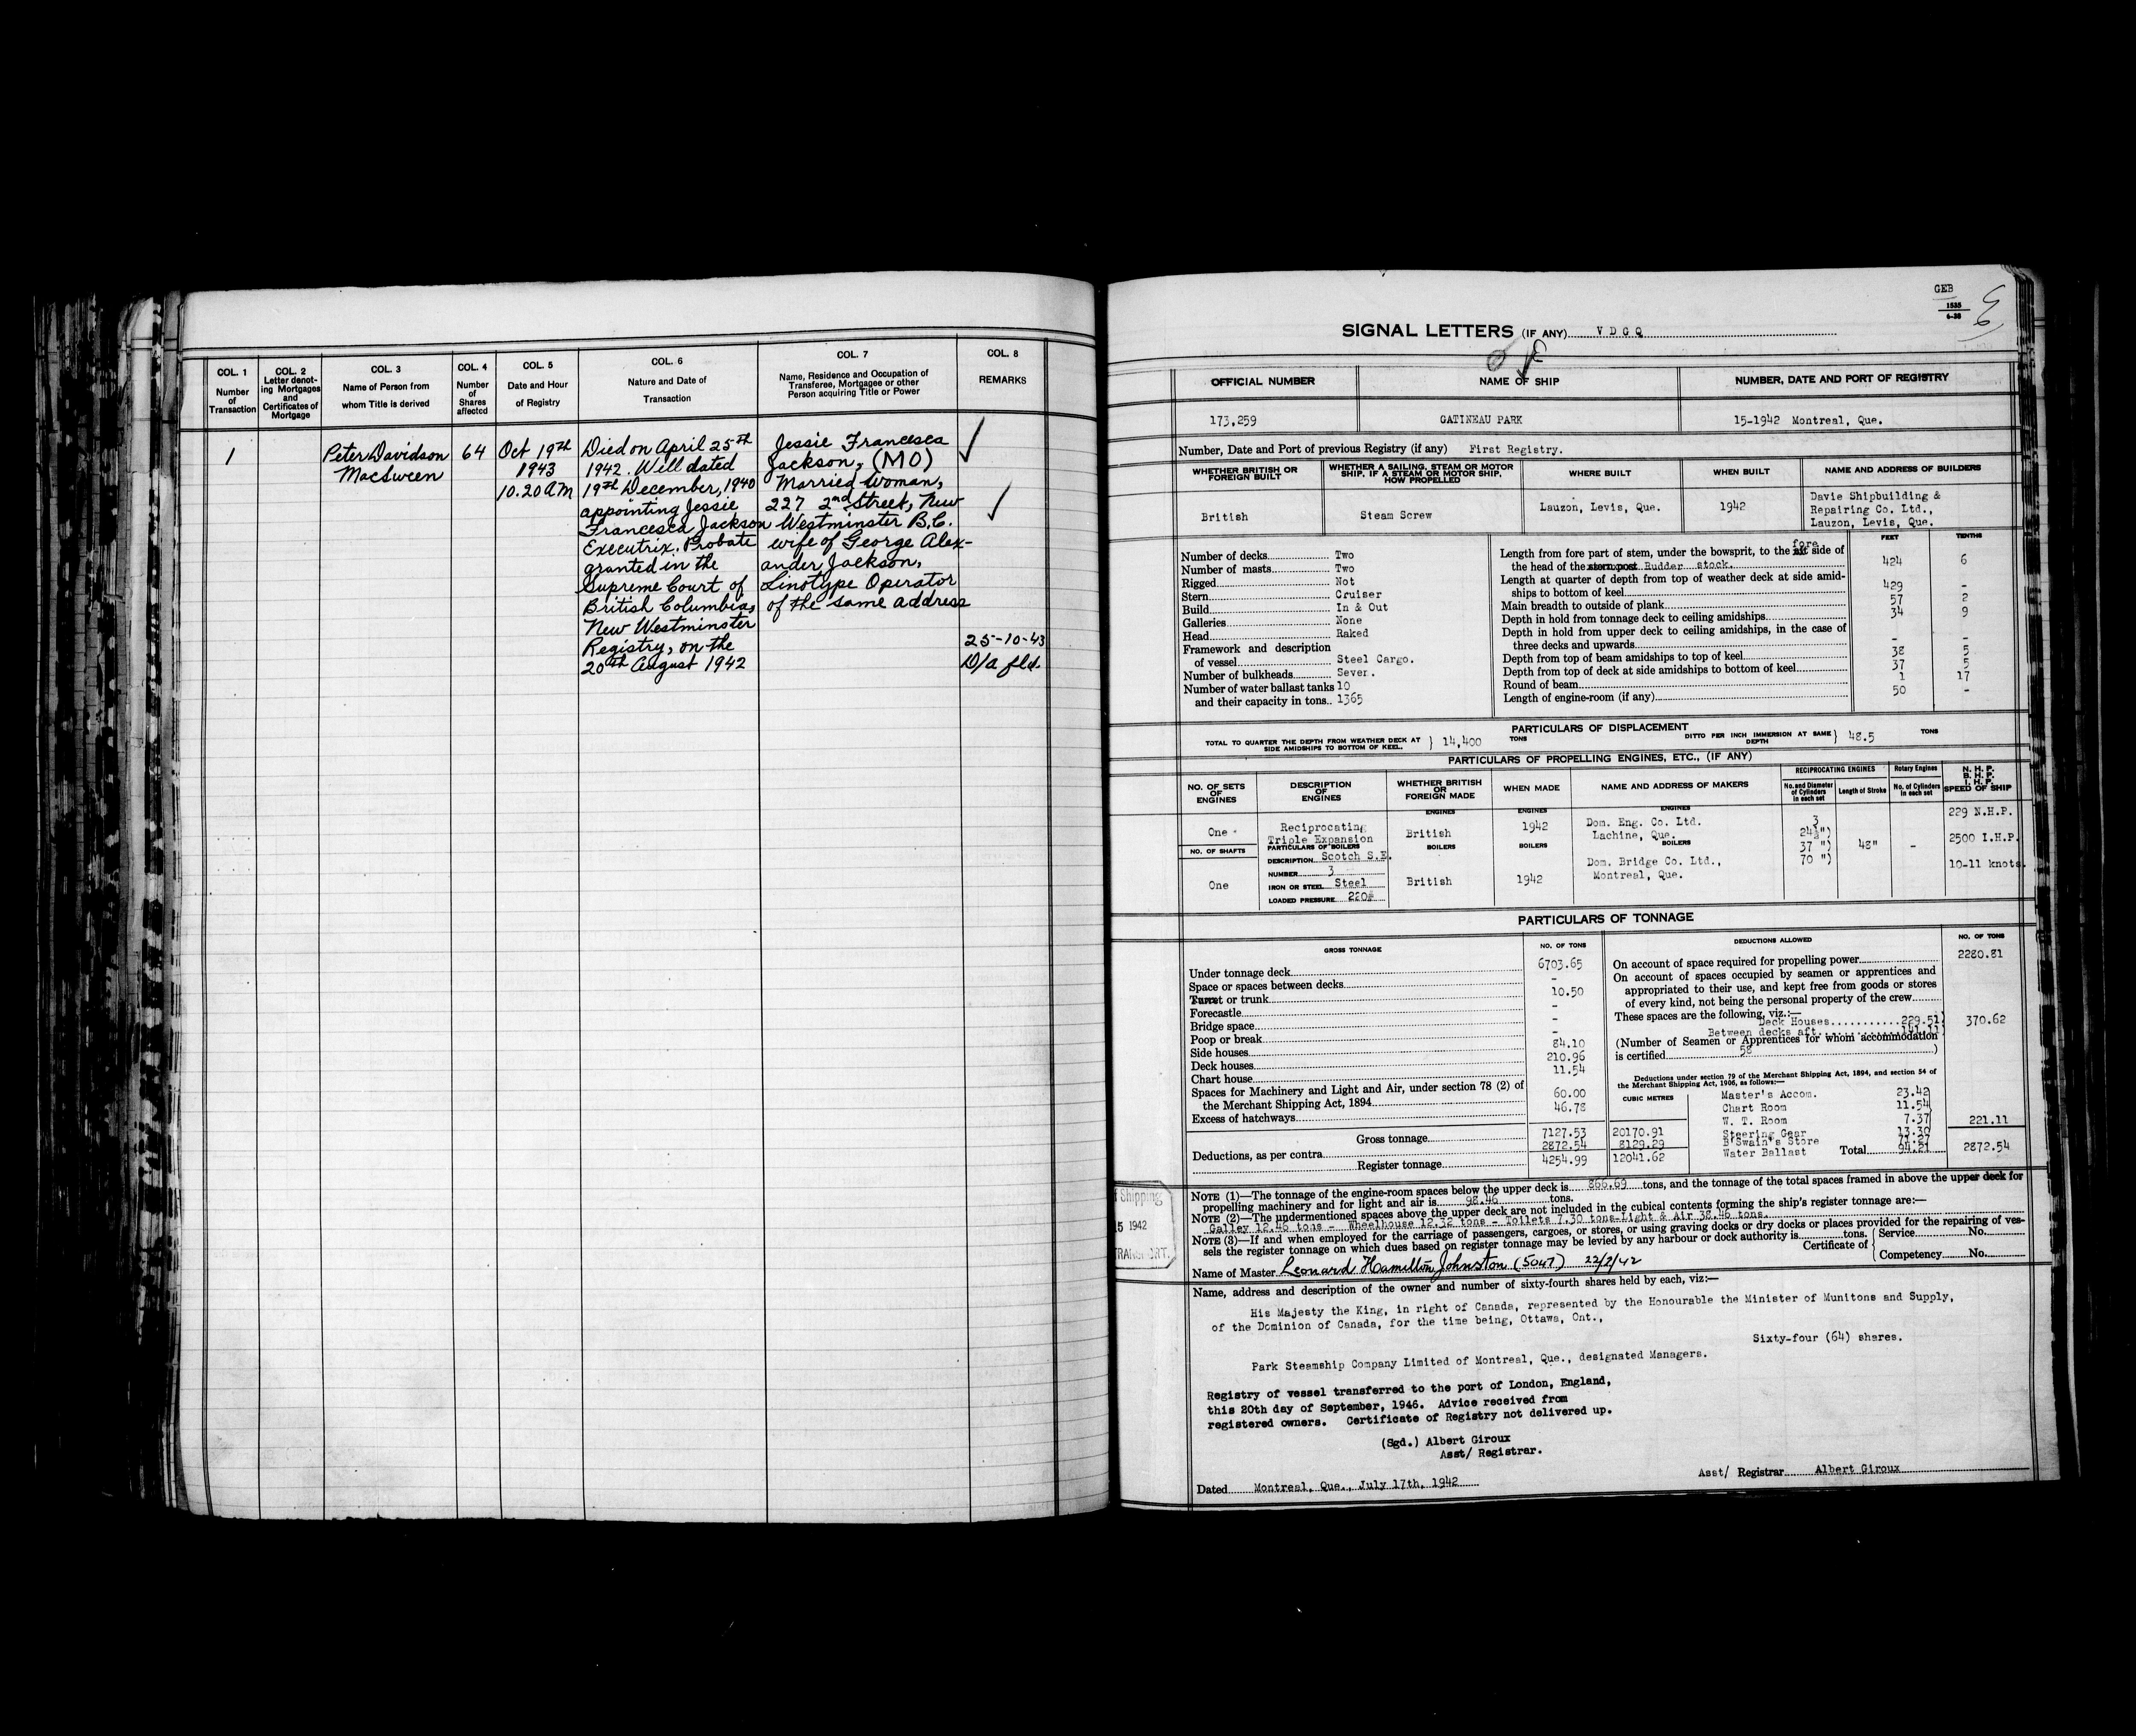 COL. 1
Number
of
Transaction
COL. 2
Letter denot-
ing Mortgages
and
Certificates of
Mortgage
COL. 3
Name of Person from
whom Title is derived
COL. 4
Number
of
Shares
affected
COL. 5
Date and Hour
of Registry
COL. 6
Nature and Date of
Transaction
COL. 7
Name, Residence and Occupation of
Transferee, Mortgagee or other
Person acquiring Title or Power
COL. 8
REMARKS
1
Peter Davidson
MacSween
64
Oct 19th
1943
10.20 AM
Died on April 25th
1942. Will dated
19th December, 1940
appointing Jessie
Francesca Jackson
Executrix. Probate
granted in the
Supreme Court of
British Columbia,
New Westminster
Registry, on the
20th August 1942
Jessie Francesca
Jackson, (MO)
Married Woman,
227 2nd Street, New
Westminster B.C.
wife of George Alex-
ander Jackson,
Linotype Operator
of the same address
25-10-43
D/a fld.
GEB
1535
6-38
SIGNAL LETTERS (IF ANY) V D G Q
OFFICIAL NUMBER
NAME OF SHIP
NUMBER, DATE AND PORT OF REGISTRY
173,259
GATINEAU PARK
15-1942 Montreal, Que.
Number, Date and Port of previous Registry (if any) First Registry.
WHETHER BRITISH OR
FOREIGN BUILT
WHETHER A SAILING, STEAM OR MOTOR
SHIP, IF A STEAM OR MOTOR SHIP,
HOW PROPELLED
WHERE BUILT
WHEN BUILT
NAME AND ADDRESS OF BUILDERS
British
Steam Screw
Lauzon, Levis, Que.
1942
Davie Shipbuilding &
Repairing Co. Ltd.,
Lauzon, Levis, Que.
Number of decks Two
Number of masts Two
Rigged Not
Stern Cruiser
Build In & Out
Galleries None
Head Raked
Framework and description
of vessel Steel Cargo.
Number of bulkheads Seven.
Number of water ballast tanks 10
and their capacity in tons.. 1365
FEET TENTHS
Length from fore part of stem, under the bowsprit, to the aft fore side of
the head of the stern post Rudder stock. 424 6
Length at quarter of depth from top of weather deck at side amid-
ships to bottom of keel 429 -
Main breadth to outside of plank 57 2
Depth in hold from tonnage deck to ceiling amidships 34 9
Depth in hold from upper deck to ceiling amidships, in the case of
three decks and upwards - -
Depth from top of beam amidships to top of keel 38 5
Depth from top of deck at side amidships to bottom of keel 37 5
Round of beam 1 17
Length of engine-room (if any) 50 -
PARTICULARS OF DISPLACEMENT
TOTAL TO QUARTER THE DEPTH FROM WEATHER DECK AT
SIDE AMIDSHIPS TO BOTTOM OF KEEL. } 14,400 TONS
DITTO PER INCH IMMERSION AT SAME
DEPTH } 48.5 TONS
PARTICULARS OF PROPELLING ENGINES, ETC., (IF ANY)
NO. OF SETS
OF
ENGINES
DESCRIPTION
OF
ENGINES
WHETHER BRITISH
OR
FOREIGN MADE
WHEN MADE
NAME AND ADDRESS OF MAKERS
RECIPROCATING ENGINES
No. and Diameter
of Cylinders
in each set
Length of Stroke
Rotary Engines
No. of Cylinders
in each set
N. H. P.
B. H. P.
I. H. P.
SPEED OF SHIP
One
NO. OF SHAFTS
One
Reciprocating
Triple Expansion
PARTICULARS OF BOILERS
DESCRIPTION Scotch S.E.
NUMBER 3
IRON OR STEEL Steel
LOADED PRESSURE 220#
ENGINES
British
BOILERS
British
ENGINES
1942
BOILERS
1942
ENGINES
Dom. Eng. Co. Ltd.
Lachine, Que.
BOILERS
Dom. Bridge Co. Ltd.,
Montreal, Que.
3
24½")
37 ")
70 ")
48"
-
229 N.H.P.
2500 I.H.P.
10-11 knots.
PARTICULARS OF TONNAGE
GROSS TONNAGE
NO. OF TONS
Under tonnage deck 6703.65
Space or spaces between decks -
Turret or trunk 10.50
Forecastle -
Bridge space -
Poop or break -
Side houses 84.10
Deck houses 210.96
Chart house 11.54
Spaces for Machinery and Light and Air, under section 78 (2) of
the Merchant Shipping Act, 1894 60.00
Excess of hatchways 46.78
Gross tonnage 7127.53 20170.91
Deductions, as per contra 2872.54 8129.29
Register tonnage 4254.99 12041.62
DEDUCTIONS ALLOWED
NO. OF TONS
On account of space required for propelling power 2280.81
On account of spaces occupied by seamen or apprentices and
appropriated to their use, and kept free from goods or stores
of every kind, not being the personal property of the crew
These spaces are the following, viz.:—
Deck Houses 229.51)
Between decks aft 141.11) 370.62
(Number of Seamen or Apprentices for whom accommodation
is certified 58 )
Deductions under section 79 of the Merchant Shipping Act, 1894, and section 54 of
the Merchant Shipping Act, 1906, as follows:—
CUBIC METRES
Master's Accom. 23.42
Chart Room 11.54
W. T. Room 7.37
Steering Gear 13.30
B'Swain's Store
Water Ballast 94.21
221.11
Total 2872.54
f Shipping
5 1942
TRANSPORT.
NOTE (1)—The tonnage of the engine-room spaces below the upper deck is 866.69 tons, and the tonnage of the total spaces framed in above the upper deck for
propelling machinery and for light and air is 98.46 tons.
NOTE (2)—The undermentioned spaces above the upper deck are not included in the cubical contents forming the ship's register tonnage are:—
Galley 12.46 tons - Wheelhouse 12.32 tons - Toilets 7.30 tons-Light & Air 38.46 tons.
NOTE (3)—If and when employed for the carriage of passengers, cargoes, or stores, or using graving docks or dry docks or places provided for the repairing of ves-
sels the register tonnage on which dues based on register tonnage may be levied by any harbour or dock authority is tons.
Certificate of { Service No.
Competency No.
Name of Master Leonard Hamilton Johnston (5047) 22/2/42
Name, address and description of the owner and number of sixty-fourth shares held by each, viz:—
His Majesty the King, in right of Canada, represented by the Honourable the Minister of Munitons and Supply,
of the Dominion of Canada, for the time being, Ottawa, Ont.,
Sixty-four (64) shares.
Park Steamship Company Limited of Montreal, Que., designated Managers.
Registry of vessel transferred to the port of London, England,
this 20th day of September, 1946. Advice received from
registered owners. Certificate of Registry not delivered up.
(Sgd.) Albert Giroux
Asst/ Registrar.
Asst/ Registrar Albert Giroux
Dated Montreal, Que., July 17th, 1942